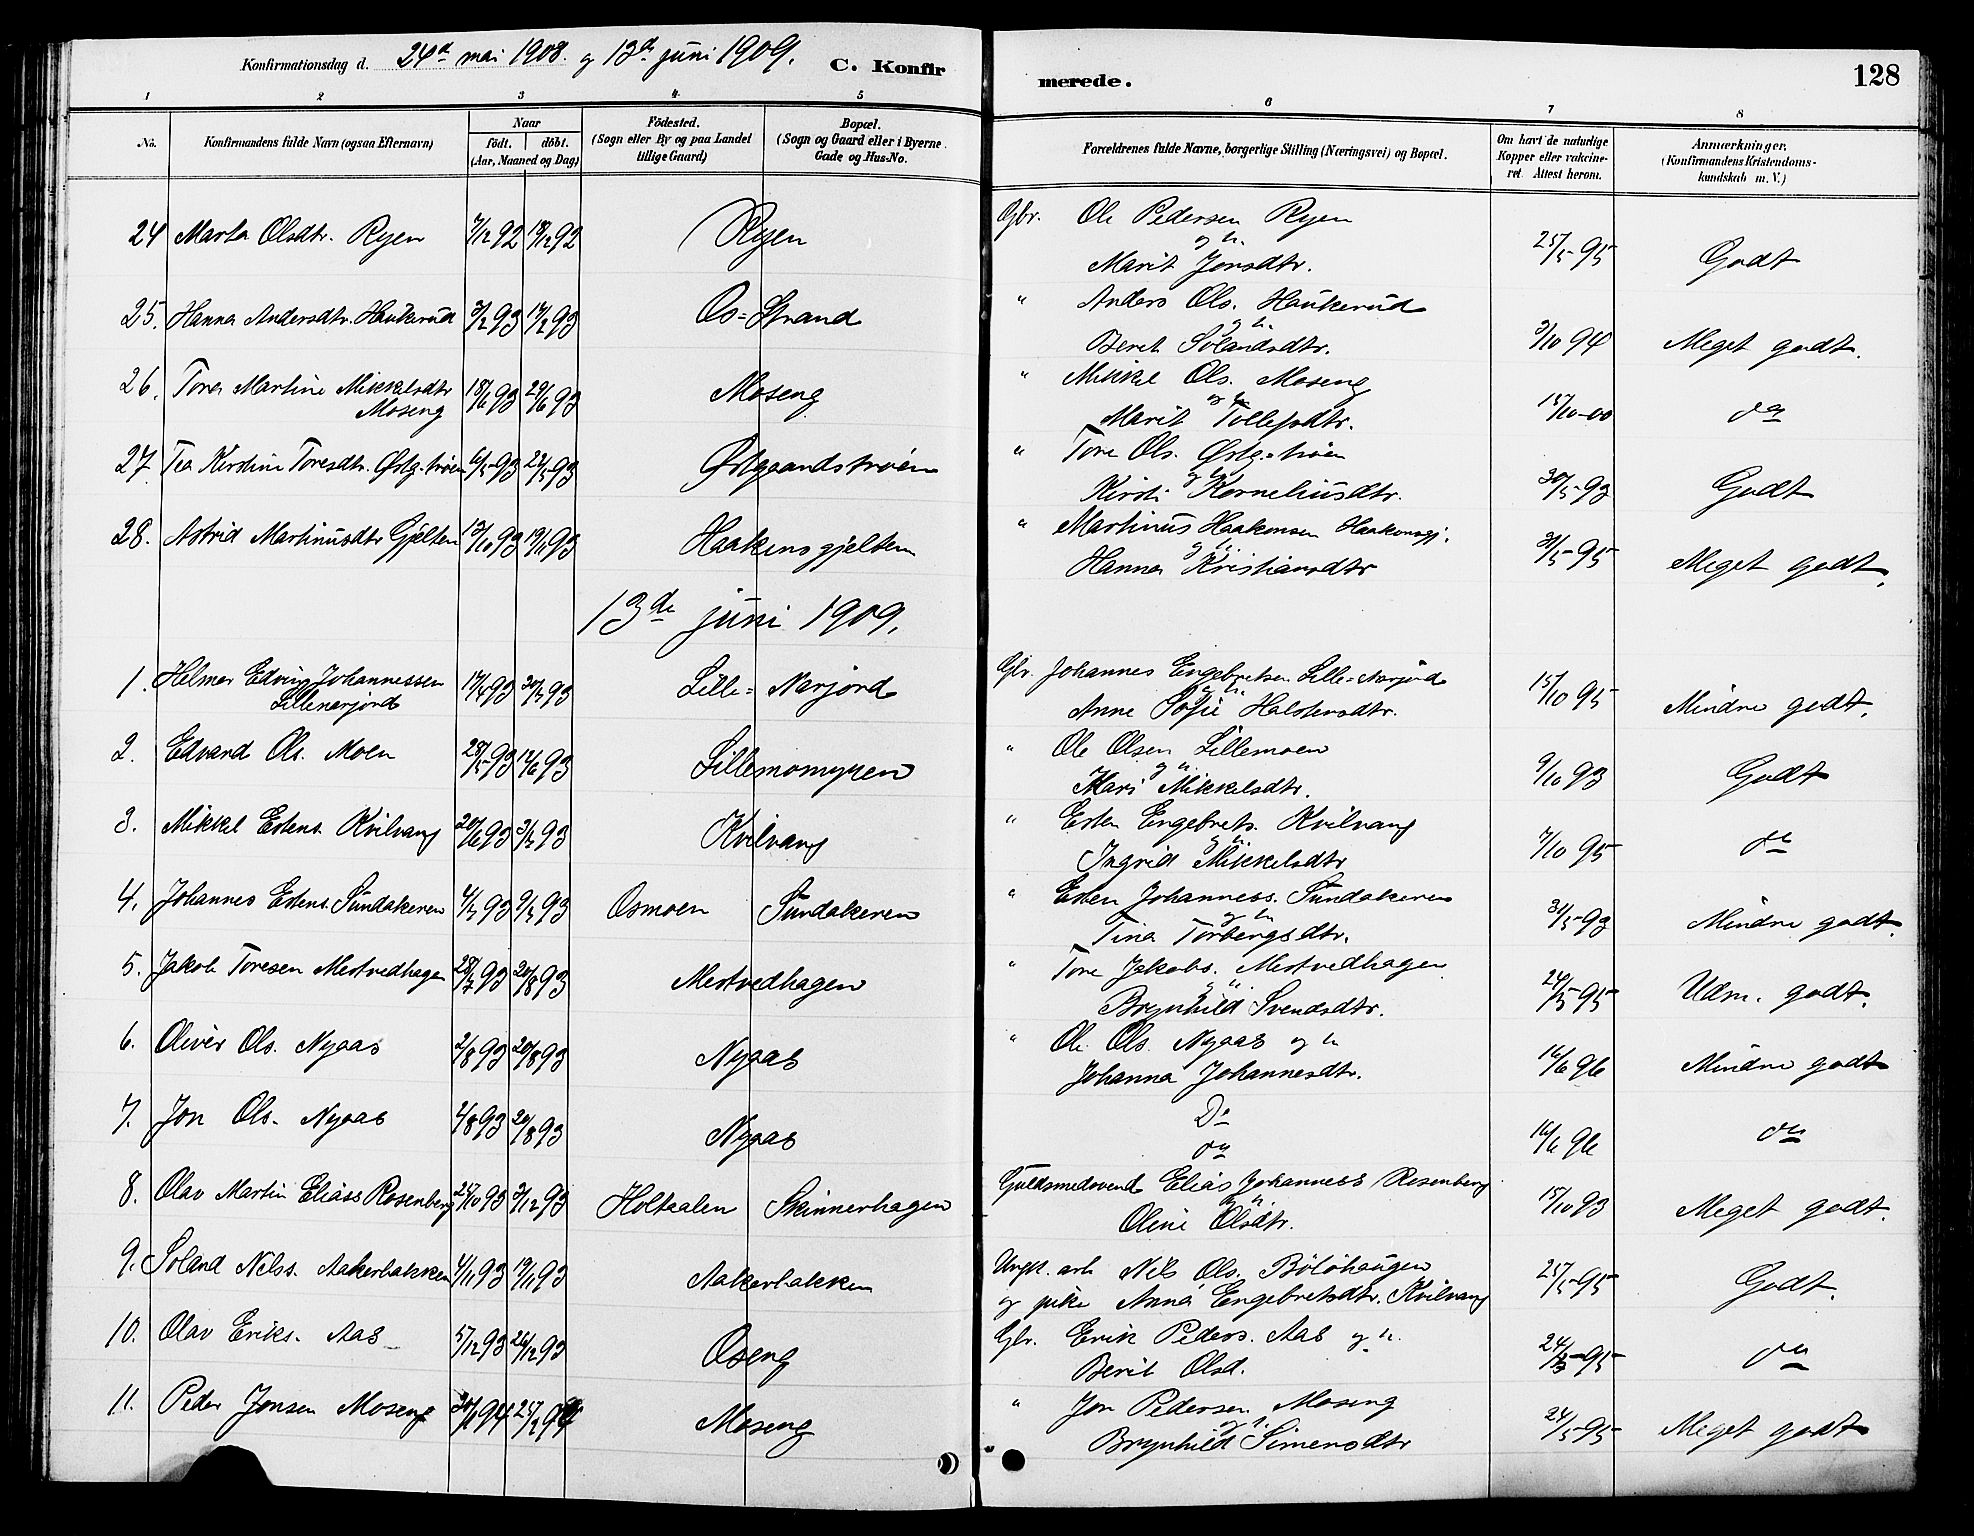 Konfirmationsdag d. 24d mai 1908. og 13d juni 1909. C. Konfirmerede. 128
1 2 3 4 5 6 7 8
No. Konfirmandens fulde Navn (ogsaa Efternavn) Naar födt. döbt. (Aar, Maaned og Dag) Födested. (Sogn eller By og paa Landet tillige Gaard) Bopæl. (Sogn og Gaard eller i Byerne Gade og Hus-No. Forældrenes fulde Navne, borgerlige Stilling (Næringsvei) og Bopæl. Om havt de naturlige Kopper eller vakcineret. Attest herom. Anmærkninger. (Konfirmandens Kristendomskundskab m. V.)
24 Marta Olsdtr. Ryen 7/12 92 18/12 92 Ryen Gbr. Ole Pedersen Ryen og h. Marit Jonsdtr. 25/5 95 Godt
25. Hanna Andersdtr. Haukerud 3/2 93 19/2 93 Os=Strand " Anders Ols. Haukerud og h. Beret Solandsdtr. 3/10 94 Meget godt.
26. Tora Martine Mikkelsdtr Moseng 18/6 93 29/6 93 Moseng " Mikkel Ols. Moseng og h. Marit Tollefsdtr. 15/10-00 do
27 Tea Kirstine Toresdtr. Østg.trøen 6/5 93 22/5 93 Østgaardstrøen " Tore Ols. Østg.trøen og h. Kirsti Korneliusdtr. 30/5-93 Godt
28. Astrid Martinusdtr Gjelten 13/10 93 19/11 93 Haakensgjelten " Martinus Haakonsen Haakonsgj. og h. Hanna Kristiansdtr 31/5-95 Meget godt.
13de juni 1909.
1. Helmer Edvin Johannessen Lillenarjord 17/4 93 Lille=Narjord Gbr. Johannes Engebretsen Lille=Narjord og h. Anne Sofie Halstensdtr. 15/10 95 Mindre godt.
2. Edvard Ols. Moen 28/5-93 Lillemomyren " Ole Olsen Lillemoen og h. Mari Mikkelsdtr. 9/10 93 Godt
3. Mikkel Estens. Kvilvang 20/6 93 Kvilvang " Esten Engebrets. Kvilvang og h. Ingrid Mikkelsdtr 7/10 95 do
4. Johannes Estens. Sundakeren Osmoen Sundakeren " Esten Johanness. Sundakeren og h. Tina Torbergsdtr. 31/5-93 Mindre godt.
5. Jakob Toresen Mestvedhagen 28/7 93 20/8 93 Mestvedhagen " Tore Jakobs. Mestvedhagen og h. Brynhild Svendsdtr. 24/5 95 Udm. godt.
6. Oliver Ols. Nyaas 2/8 93 20/8 93 Nyaas " Ole Ols. Nyaas og h Johanna Johannesdtr. 16/6 96 Mindre godt
7. Jon Ols. Nyaas 2/8 93 20/8 93 Nyaas Do do 16/6 96 do
8. Olav Martin Eliass Rosenberg 25/10 93 3/12 93 Holtaalen Skinnerhagen Guldsmedsvend Elias Johanness Rosenberg og h. Oline Olsdtr. 15/10 93 Meget godt.
9. Soland Nilss. Aakerbakken 4/11 93 19/11 93 Aakerbakken Ungk. arb. Nils Ols. Bölöhaugen og pike Anna Engebretsdtr. Kvilvang 25/5-95 Godt.
10. Olav Eriks. Aas 5/12 93 26/12 93 Oseng Gbr. Erik Peders. Aas og h. Berit Olsd. 24/5-95 do
11. Peder Jonsen Moseng 30/1 94 25/2 94 Moseng " Jon Pedersen Moseng og h. Brynhild Simensdtr 24/5-95 Meget godt